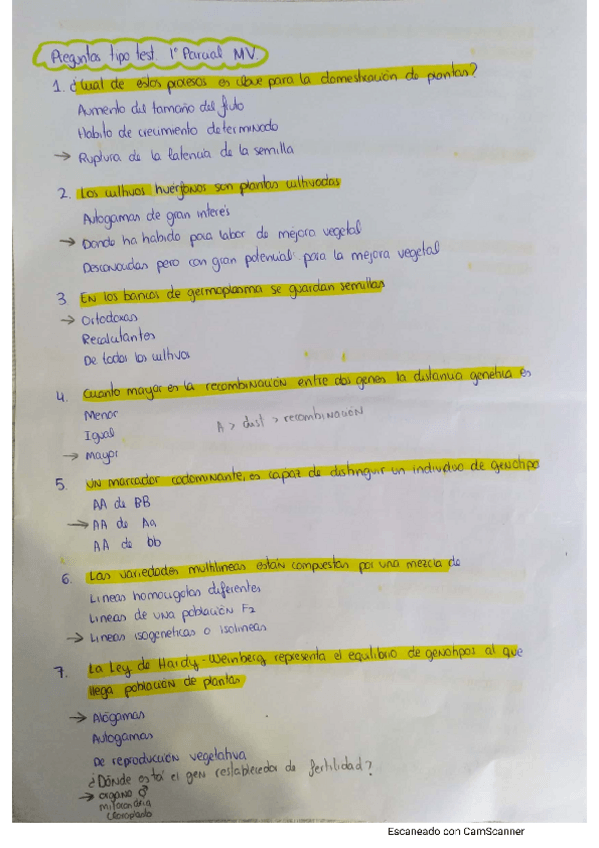 Preguntas tipo test 1º Parcial MV
1. ¿Cual de estos procesos es clave para la domesticación de plantas?
Aumento del tamaño del fruto
Habito de crecimiento determinado
→ Ruptura de la latencia de la semilla
2. Los cultivos huérfonos son plantas cultivadas
Autogamas de gran interés
→ Donde ha habido poca labor de mejora vegetal
Desconocidas pero con gran potencial para la mejora vegetal
3 En los bancos de germoplasma se guardan semillas
→ Ortodoxas
Recalcitantes
De todos los cultivos
4. Cuanto mayor es la recombinación entre dos genes la distancia genetica es
Menor
Igual
A > dist > recombinación
→ Mayor
5. Un marcador codominante, es capaz de distinguir un individuo de genotipo
AA de BB
→ AA de Aa
AA de bb
6. Las variedades multilineas están compuestas por una mezcla de
Lineas homocigotas diferentes
Lineas de una población F2
→ Lineas isogeneticas o isolineas
7. La Ley de Hardy-Weinberg representa el equilibrio de genotipos al que
llega población de plantas
→ Alógamas
Autogamas
De reproducción vegetativa
¿Dónde está el gen restablecedor de fertilidad?
→ organo ♂
mitocondria
cloroplasto
Escaneado con CamScanner